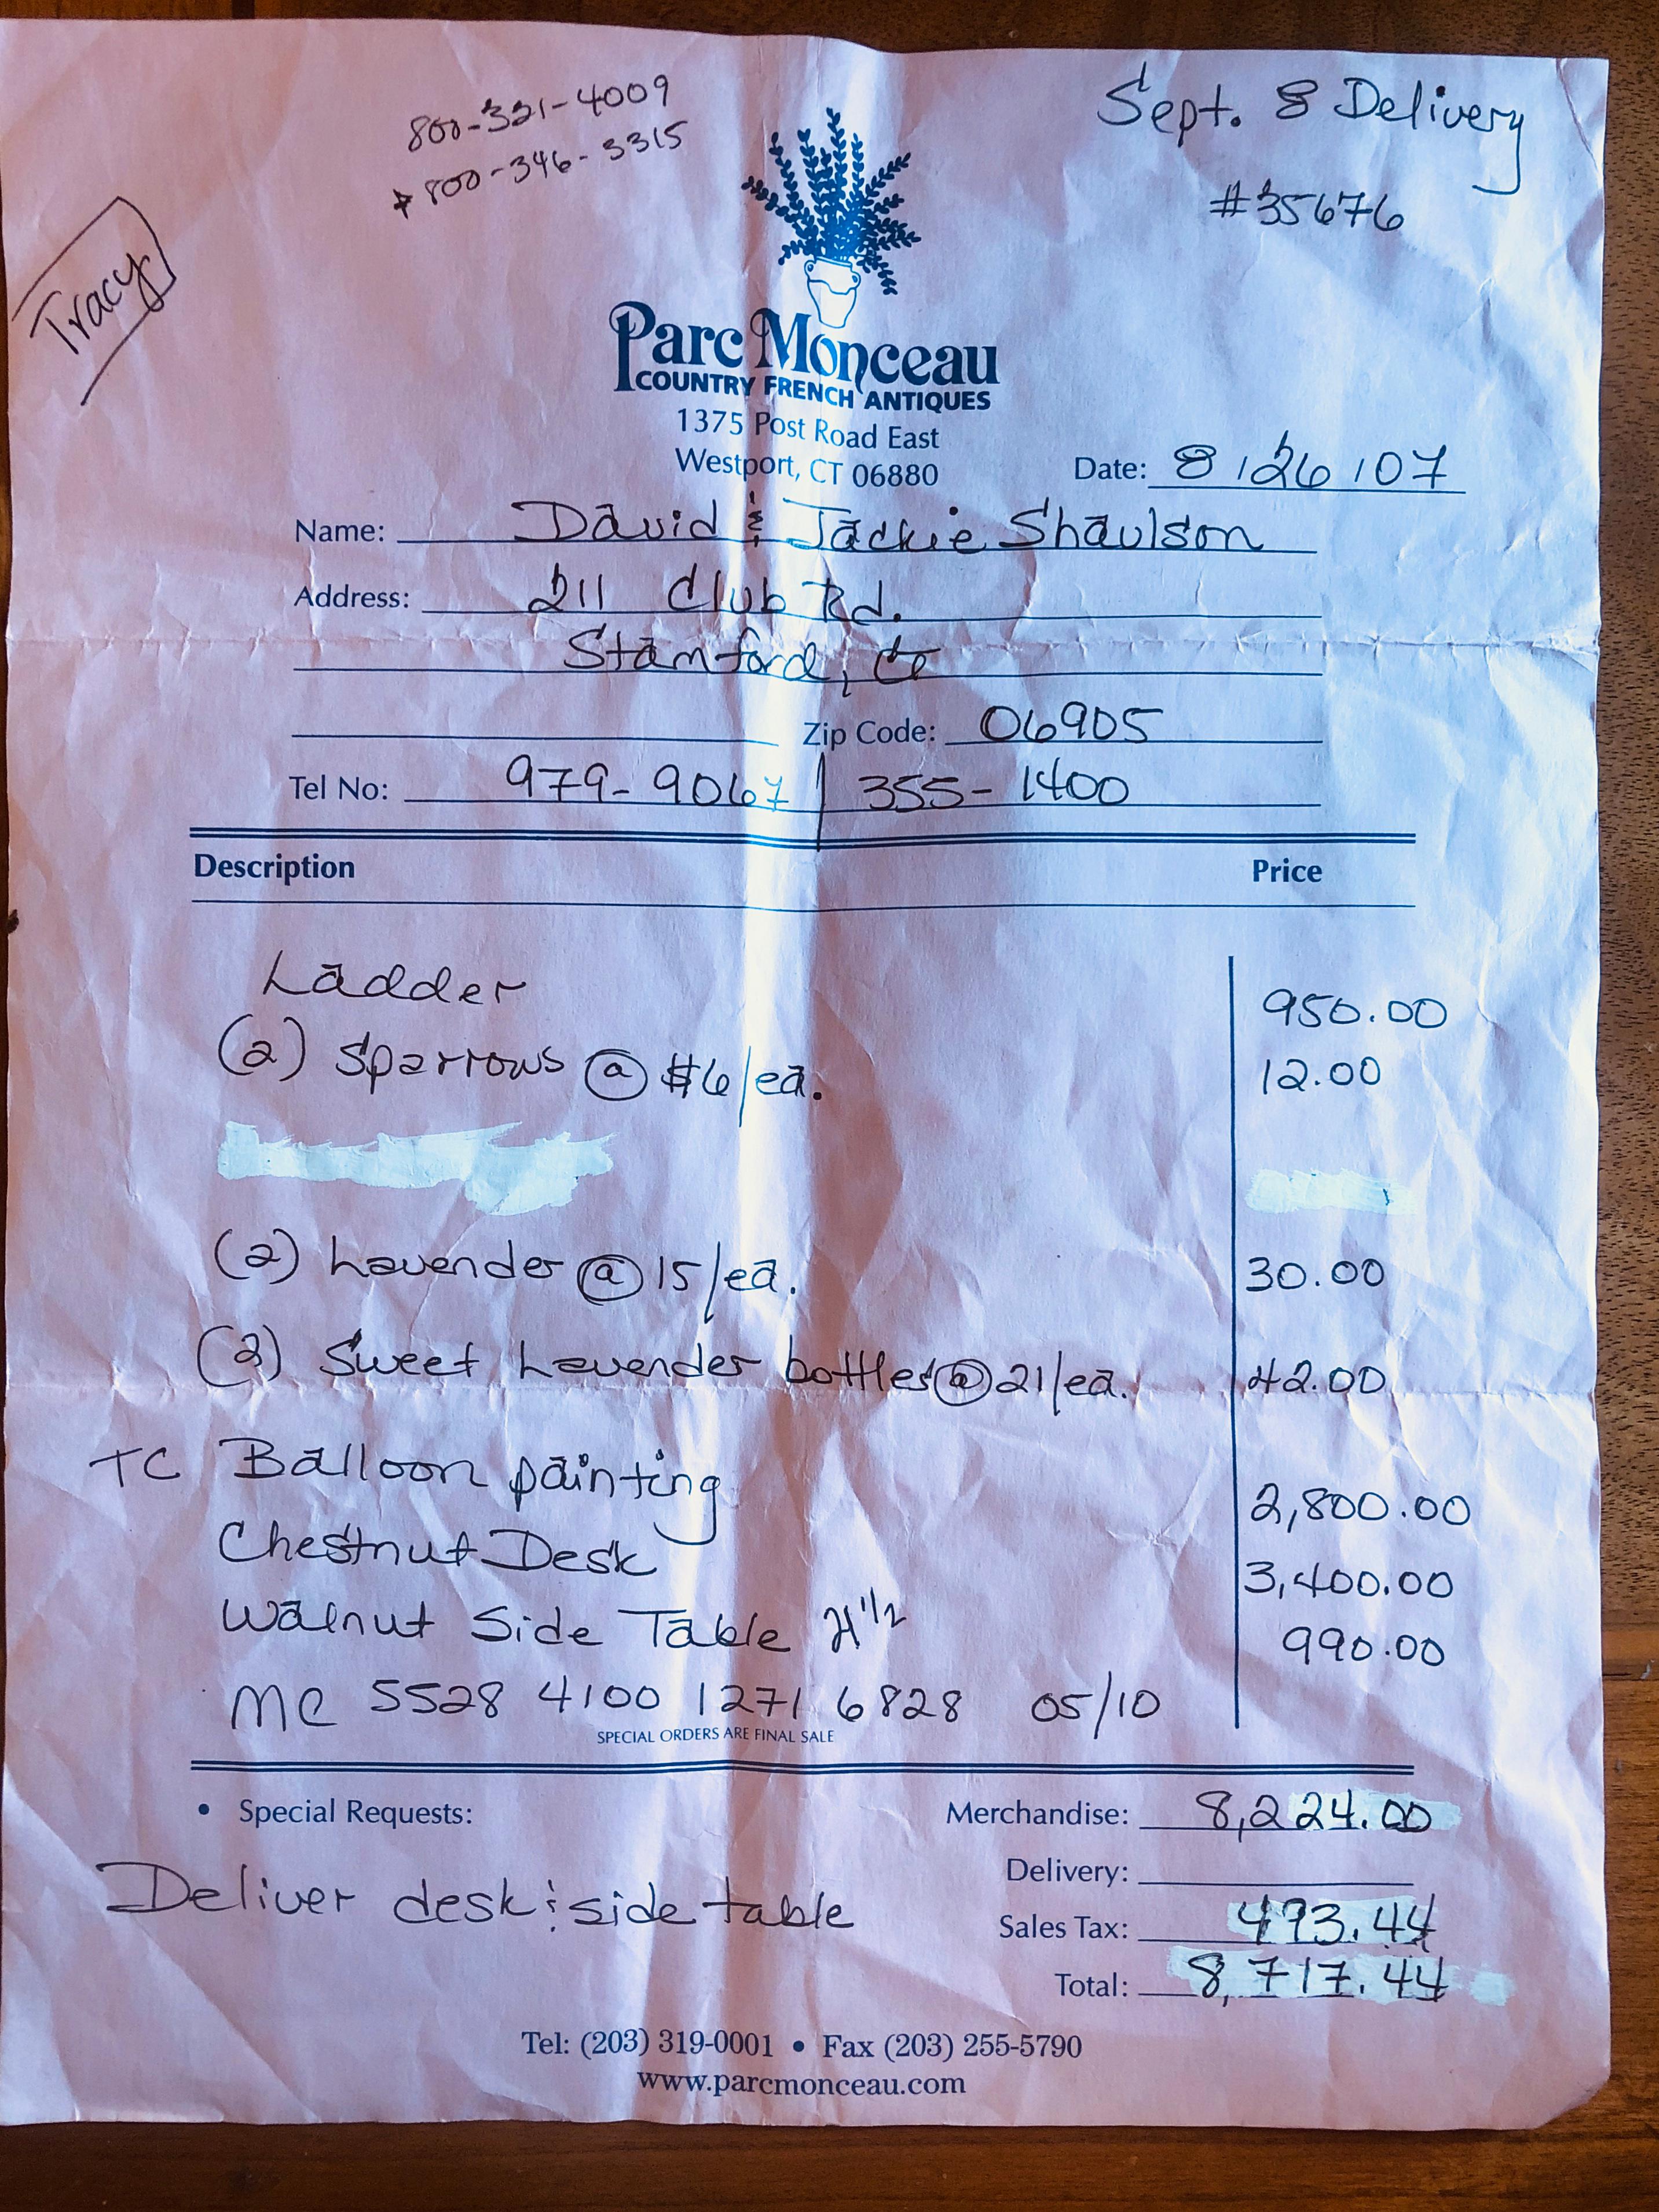 800-321-4009
800-346-3315
Sept. 8 Delivery
#35676
Tracy
Parc Monceau
COUNTRY FRENCH ANTIQUES
1375 Post Road East
Westport, CT 06880
Date: 8/26/07
Name: David & Jackie Shaulson
Address: 211 Club Rd.
Stamford, Ct
Zip Code: 06905
Tel No: 979-9067 | 355-1400
Description Price
Ladder 950.00
(2) Sparrows @ $6/ea. 12.00
(2) Lavender @ 15/ea. 30.00
(2) Sweet Lavender bottles @ 21/ea. 42.00
TC Balloon painting 2,800.00
Chestnut Desk 3,400.00
Walnut Side Table 21 1/2 990.00
MC 5528 4100 1271 6828 05/10
SPECIAL ORDERS ARE FINAL SALE
• Special Requests:
Merchandise: 8,224.00
Delivery:
Deliver desk & side table
Sales Tax: 493.44
Total: 8,717.44
Tel: (203) 319-0001 • Fax (203) 255-5790
www.parcmonceau.com